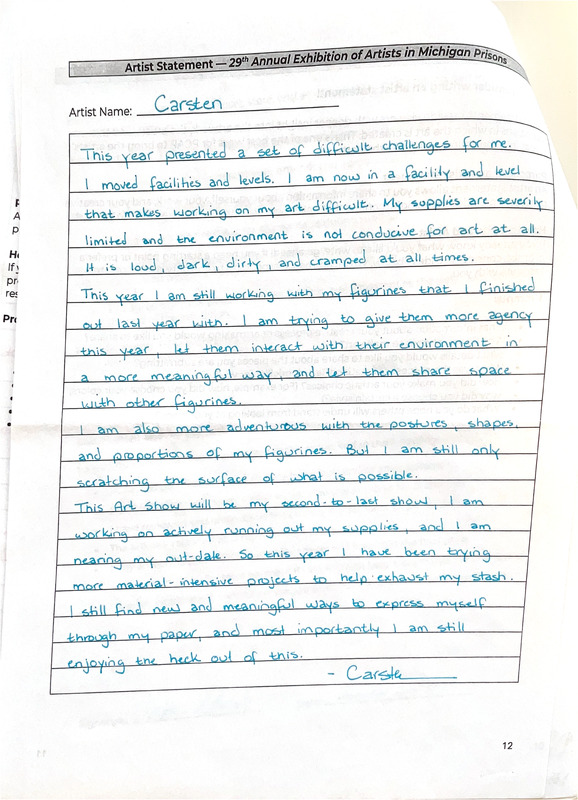 Artist Statement — 29th Annual Exhibition of Artists in Michigan Prisons
Artist Name: Carsten
This year presented a set of difficult challenges for me.
I moved facilities and levels. I am now in a facility and level
that makes working on my art difficult. My supplies are severily
limited and the environment is not conducive for art at all.
It is loud, dark, dirty, and cramped at all times.
This year I am still working with my figurines that I finished
out last year with. I am trying to give them more agency
this year, let them interact with their environment in
a more meaningful way, and let them share space
with other figurines.
I am also more adventurous with the postures, shapes,
and proportions of my figurines. But I am still only
scratching the surface of what is possible.
This Art Show will be my second-to-last show, I am
working on actively running out my supplies, and I am
nearing my out-date. So this year I have been trying
more material-intensive projects to help exhaust my stash.
I still find new and meaningful ways to express myself
through my paper, and most importantly I am still
enjoying the heck out of this.
- Carsten
12